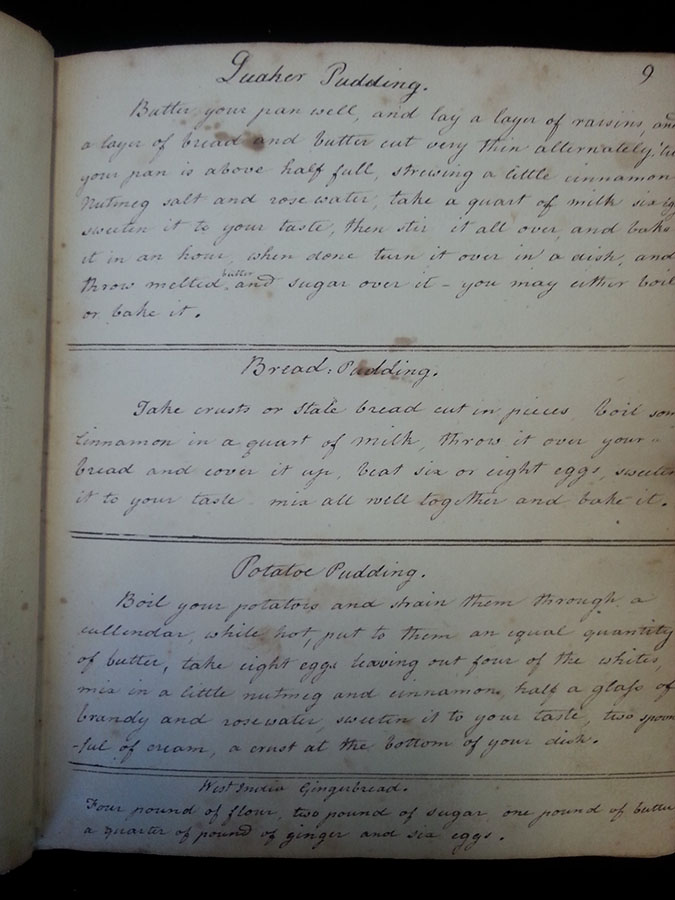 Quaker Pudding.
9
Butter your pan well, and lay a layer of raisins, and
a layer of bread and butter cut very thin alternately, 'til
your pan is above half full, strewing a little cinnamon
Nutmeg salt and rose water, take a quart of milk six eg
sweeten it to your taste, then stir it all over, and bake
it in an hour, when done turn it over in a dish, and
throw melted butter and sugar over it - you may either boil
or bake it.
Bread: Pudding.
Take crusts or stale bread cut in pieces, boil som
Cinnamon in a quart of milk, throw it over your
bread and cover it up, beat six or eight eggs, sweeten
it to your taste - mix all well together and bake it.
Potatoe Pudding.
Boil your potatoes and strain them through a
cullendar, while hot, put to them an equal quantity
of butter, take eight eggs leaving out four of the whites,
mix in a little nutmeg and cinnamon, half a glass of
brandy and rosewater, sweeten it to your taste, two spoon
-ful of cream, a crust at the bottom of your dish.
West India Gingerbread.
Four pound of flour, two pound of sugar, one pound of butter
a quarter of pound of ginger and six eggs.